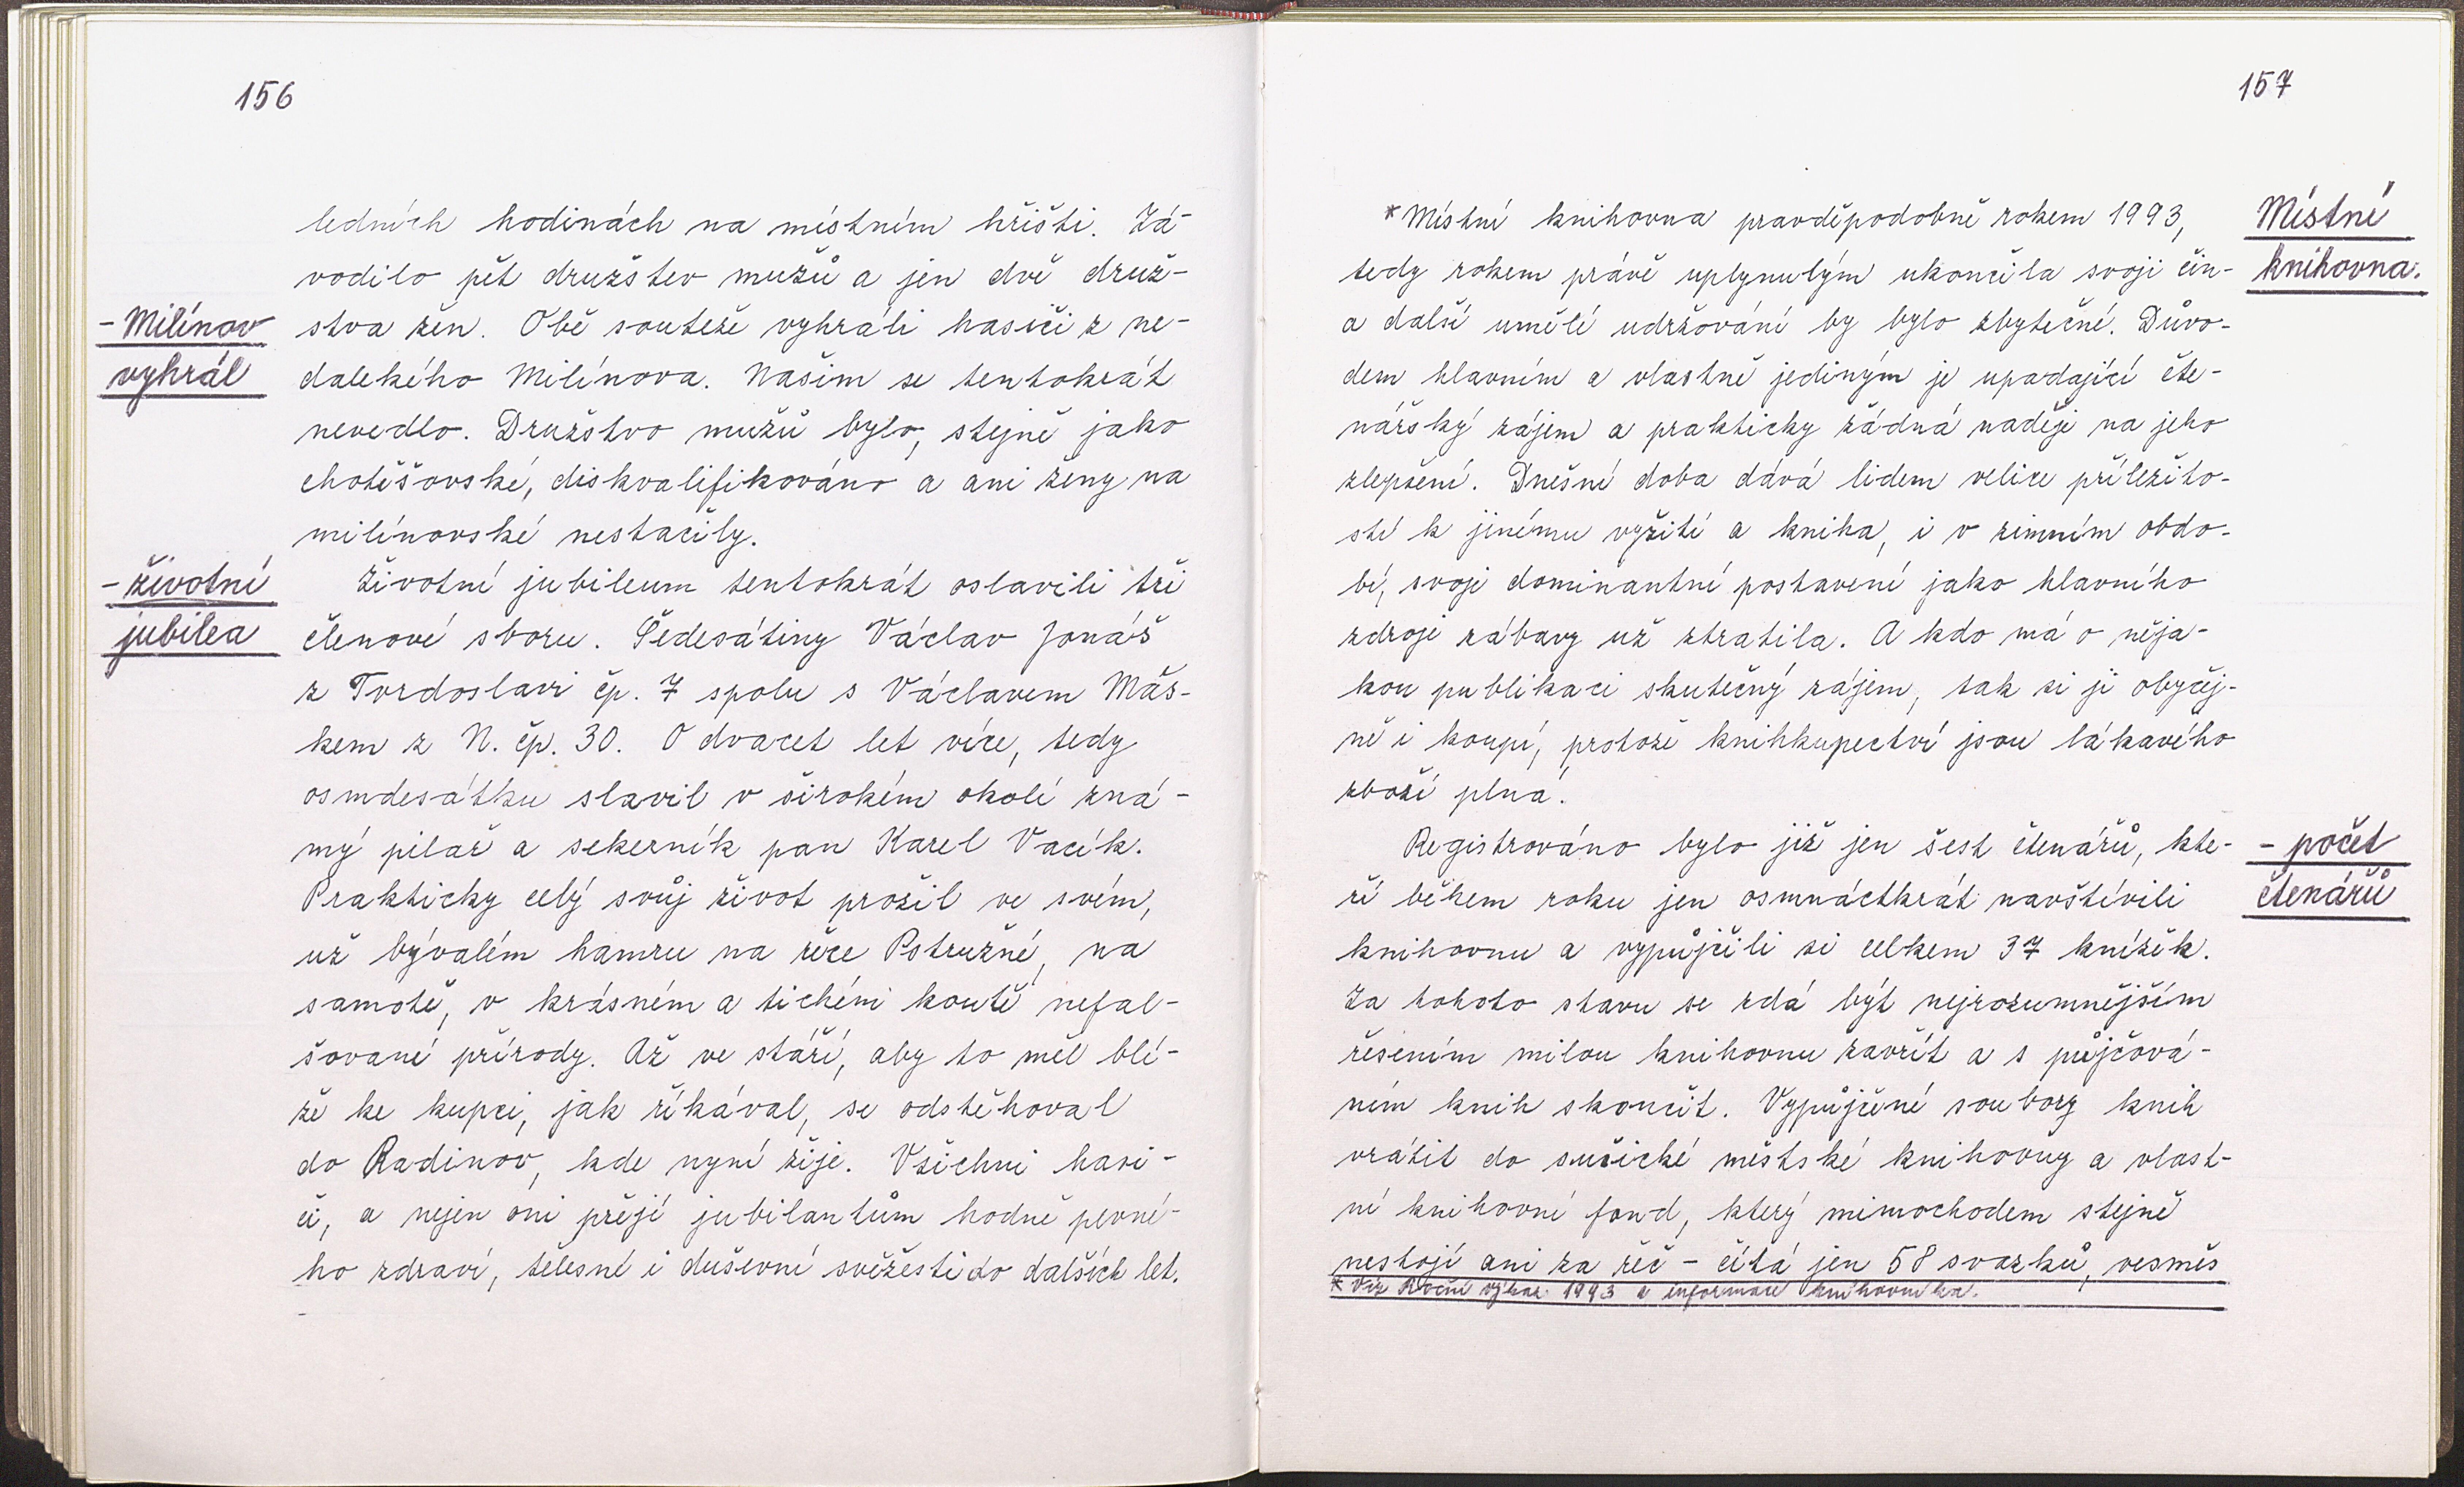 156
ledních hodinách na místním hřišti. Zá-
vodilo pět družstev mužů a jen dvě druž-
- Milínov
stva žen. Obě souteže vyhráli hasiči z ne-
vyhrál
dalekého Milínova. Našim se tentokrát
nevedlo. Družstvo mužů bylo, stejně jako
chotěšovské, diskvalifikováno a ani ženy na
milínovské nestačily.
- životní
Životní jubileum tentokrát oslavili tři
jubilea
členové sboru. Šedesátiny Václav Jonáš
z Tvrdoslavi čp. 7 spolu s Václavem Maš-
kem z N. čp. 30. O dvacet let více, tedy
osmdesátku slavil v širokém okolí zná-
mý pilař a sekerník pan Karel Vacík.
Prakticky celý svůj život prožil ve svém,
už bývalém hamru na řece Pstružné, na
samotě, v krásném a tichém koutě nefal-
šované přírody. Až ve stáří, aby to měl blí-
že ke kupci, jak říkával, se odstěhoval
do Radinov, kde nyní žije. Všichni hasi-
či, a nejen oni přejí jubilantům hodně pevné-
ho zdraví, tělesné i duševní svěžesti do dalších let.
157
* Místní knihovna pravděpodobně rokem 1993,
Místní
tedy rokem právě uplynulým ukončila svoji čin-
knihovna.
a další umělé udržování by bylo zbytečné. Důvo-
dem hlavním a vlastně jediným je upadající čte-
nářský zájem a prakticky žádná naděje na jeho
zlepšení. Dnešní doba dává lidem velice příležito-
stí k jinému vyžití a kniha, i v zimním obdo-
bí, svoje dominantní postavení jako hlavního
zdroje zábavy už ztratila. A kdo má o něja-
kou publikaci skutečný zájem, tak si ji obyčej-
ně i koupí, protože knihkupectví jsou lákavého
zboží plná.
Registrováno bylo již jen šest čtenářů, kte-
- počet
ří během roku jen osmnáctkrát navštívili
čtenářů
knihovnu a vypůjčili si celkem 37 knížek.
Za tohoto stavu se zdá být nejrozumnějším
řešením milou knihovnu zavřít a s půjčová-
ním knih skončit. Vypůjčené soubory knih
vrátit do sušické městské knihovny a vlast-
ní knihovní fond, který mimochodem stejně
nestojí ani za řeč - čítá jen 58 svazků, vesměs
* Viz Roční výkaz 1993 a informace knihovníka.